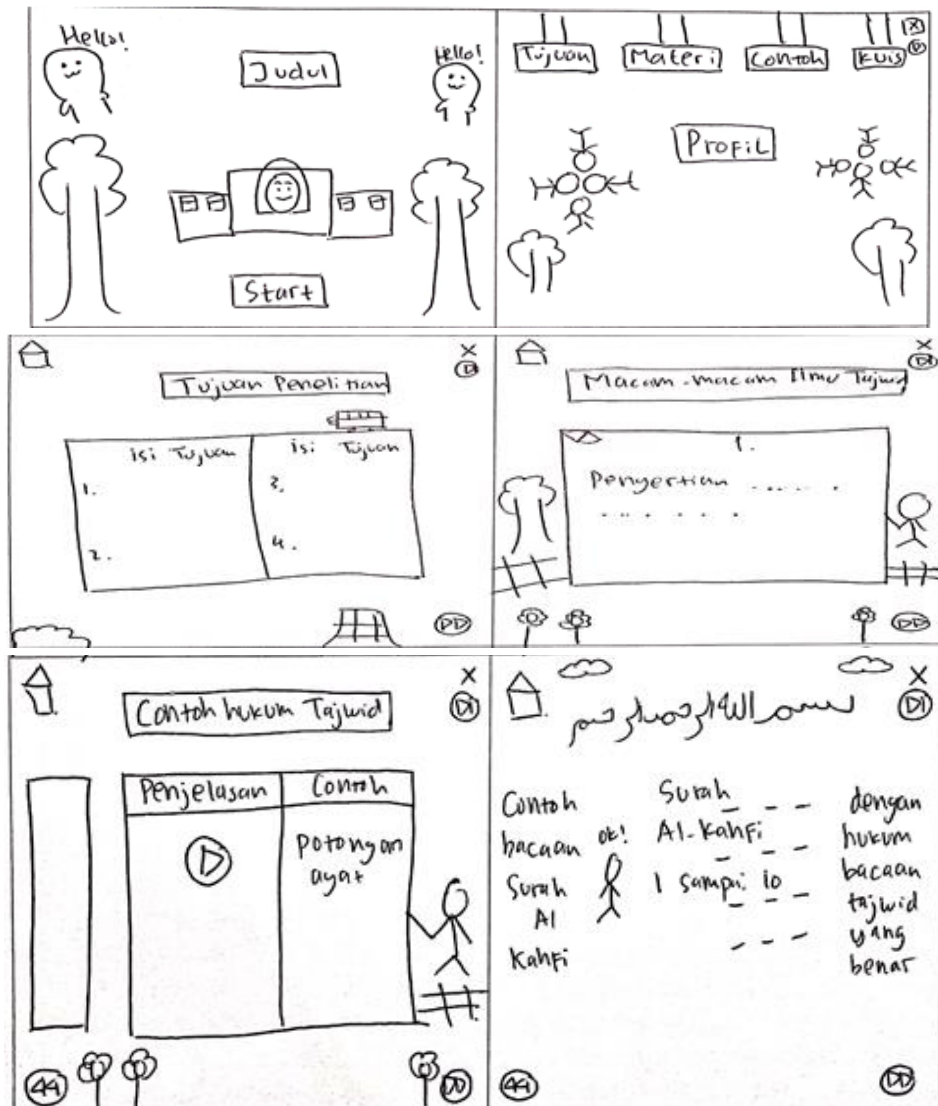 Hello!
Judul
Hello!
Start
Tujuan
Materi
Contoh
Kuis
X
Profil
X
Tujuan Penelitian
isi Tujuan
isi Tujuan
1.
3.
2.
4.
X
Macam-macam Ilmu Tajwid
1.
Pengertian ......
......
X
Contoh hukum Tajwid
Penjelasan
Contoh
potongan
ayat
X
بسم الله الرحمن الرحيم
Contoh
bacaan
Surah
Al
Kahfi
ok!
Surah
Al-Kahfi
1 sampai 10
dengan
hukum
bacaan
tajwid
yang
benar